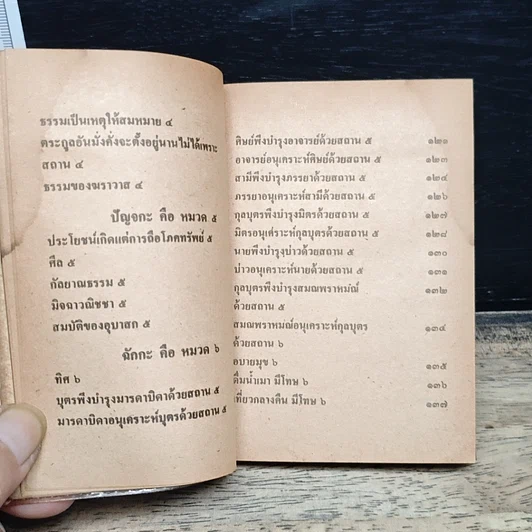 ธรรมเป็นเหตุให้สมหมาย ๔
ตระกูลอันมั่งคั่งจะตั้งอยู่นานไม่ได้เพราะ
สถาน ๔
ธรรมของฆราวาส ๔
ปัญจกะ คือ หมวด ๕
ประโยชน์เกิดแต่การถือโภคทรัพย์ ๕
ศีล ๕
กัลยาณธรรม ๕
มิจฉาวณิชชา ๕
สมบัติของอุบาสก ๕
ฉักกะ คือ หมวด ๖
ทิศ ๖
บุตรพึงบำรุงมารดาบิดาด้วยสถาน ๕
มารดาบิดาอนุเคราะห์บุตรด้วยสถาน ๕
ศิษย์พึงบำรุงอาจารย์ด้วยสถาน ๕ ๑๒๑
อาจารย์อนุเคราะห์ศิษย์ด้วยสถาน ๕ ๑๒๓
สามีพึงบำรุงภรรยาด้วยสถาน ๕ ๑๒๕
ภรรยาอนุเคราะห์สามีด้วยสถาน ๕ ๑๒๖
กุลบุตรพึงบำรุงมิตรด้วยสถาน ๕ ๑๒๗
มิตรอนุเคราะห์กุลบุตรด้วยสถาน ๕ ๑๒๘
นายพึงบำรุงบ่าวด้วยสถาน ๕ ๑๓๐
บ่าวอนุเคราะห์นายด้วยสถาน ๕ ๑๓๑
กุลบุตรพึงบำรุงสมณพราหมณ์
ด้วยสถาน ๕ ๑๓๒
สมณพราหมณ์อนุเคราะห์กุลบุตร
ด้วยสถาน ๖ ๑๓๔
อบายมุข ๖ ๑๓๕
ดื่มน้ำเมา มีโทษ ๖ ๑๓๖
เที่ยวกลางคืน มีโทษ ๖ ๑๓๗